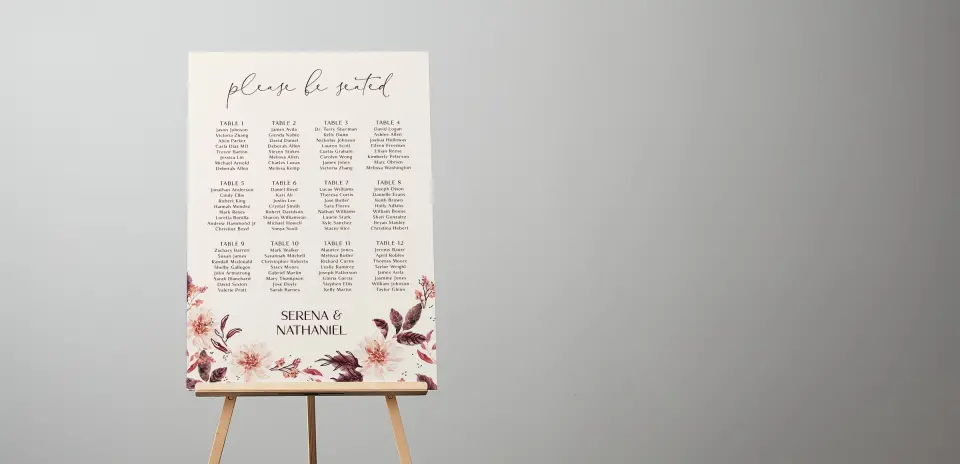 please be seated
TABLE 1
Jason Johnson
Victoria Zhang
Alan Parker
Carla Diaz MD
Trevor Barton
Jessica Lin
Michael Arnold
Deborah Allen
TABLE 2
James Avila
Glenda Noble
David Daniel
Deborah Allen
Steven Stokes
Melissa Allen
Charles Lucas
Melissa Kemp
TABLE 3
Dr. Terry Sherman
Kelly Dunn
Nicholas Johnson
Lauren Scott
Curtis Graham
Carolyn Wong
James Jones
Victoria Zhang
TABLE 4
David Logan
Ashley Allen
Joshua Holloway
Eileen Freeman
Jillian Reeve
Kimberly Peterson
Marc Obrien
Melissa Washington
TABLE 5
Jonathan Anderson
Cindy Ellis
Robert King
Hannah Mendez
Mark Reyes
Loretta Bonilla
Andrew Hammond Jr
Christine Boyd
TABLE 6
Daniel Reed
Kari Ali
Justin Lee
Crystal Smith
Robert Davidson
Sharon Williamson
Michael Howell
Sonya Scott
TABLE 7
Lucas Williams
Theresa Curtis
Jose Butler
Sara Flores
Nathan Williams
Laurie Stark
Kyle Sanchez
Stacey Rice
TABLE 8
Joseph Dixon
Danielle Evans
Keith Brown
Holly Adkins
William Boone
Shari Gonzalez
Bryan Stanley
Christina Hebert
TABLE 9
Zachary Barrett
Susan James
Randall Mcdonald
Shelby Gallegos
John Armstrong
Sarah Blanchard
David Sexton
Valerie Pratt
TABLE 10
Mark Walker
Savannah Mitchell
Christopher Roberts
Stacy Moore
Gabriel Martin
Mary Thompson
Jose Doyle
Sarah Barnes
TABLE 11
Maurice Jones
Melissa Butler
Richard Curtis
Leslie Ramirez
Joseph Patterson
Gloria Garcia
Stephen Ellis
Kelly Martin
TABLE 12
April Robles
Thomas Moore
Taylor Wright
James Avila
Jasmine Jones
William Johnson
Taylor Glenn
SERENA &
NATHANIEL